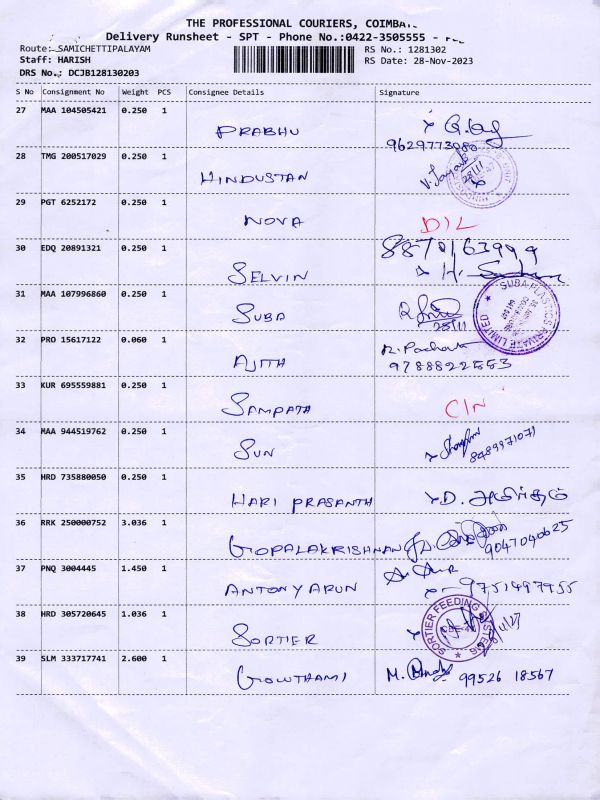 THE PROFESSIONAL COURIERS,
Delivery Runsheet - SPT - Phone No.:0422-3505555 -
Route: SAMICHETTIPALAYAM
RS No.: 1281302
Staff: HARISH
RS Date: 28-Nov-2023
DRS No.: DCJB128130203
S No Consignment No Weight PCS Consignee Details Signature
27 MAA 104505421 0.250 1
PRABHU
9629773080
28 TMG 200517029 0.250 1
HINDUSTAN
28/11
29 PGT 6252172 0.250 1
NOVA D/L
30 EDQ 20891321 0.250 1
8870163999
SELVIN
31 MAA 107996860 0.250 1
SUBA
28/11
SUBA PLASTICS PRIVATE LIMITED
32 PRO 15617122 0.060 1
AJITH
9788822553
33 KUR 695559881 0.250 1
SAMPATH C/N
34 MAA 944519762 0.250 1
SUN 8489971071
35 HRD 735880050 0.250 1
HARI PRASANTH D. அமிர்தம்
36 RRK 250000752 3.036 1
GOPALAKRISHNAN 9047040625
37 PNQ 3004445 1.450 1
ANTONY ARUN 9751497955
38 HRD 305720645 1.036 1
SORTIER
SORTIER FEEDING SYSTEMS
39 SLM 333717741 2.600 1
GOWTHAMI M. 99526 18567